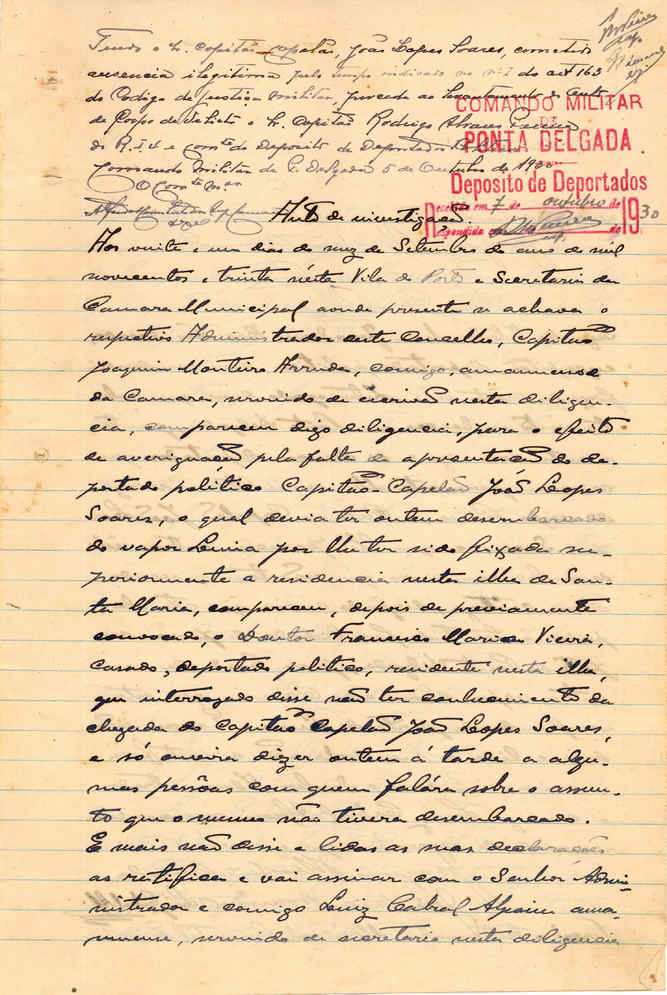 Tendo o Sr. Capitão capelão, João Lopes Soares, cometido
ausencia ilegitima pelo tempo indicado no nº 1 do artº 163
do Codigo de Justiça Militar, proceda ao levantamento do auto
de Corpo de delicto o Sr. Capitão Rodrigo Alvares Pereira
do R.I. 4 e comte do Deposito de Deportados
Comando Militar de P. Delgada 5 de Outubro de 1930
O Comte Mer
COMANDO MILITAR
DE
PONTA DELGADA
Deposito de Deportados
Recebido em 7 de outubro de 1930
Respondida em de
Auto de investigação
Aos vinte e um dias do mez de Setembro do ano de mil
novecentos e trinta nésta Vila do Porto e Secretaria da
Camara Municipal aonde presente se achava o
respetivo Administrador deste Concelho, Capitão
Joaquim Monteiro Arruda, comigo, amanuense
da Camara, servindo de escrivão nesta diligen-
cia, compareceu digo diligencia, para o efeito
de averiguação pela falta da apresentação do de-
portado politico Capitão-Capelão João Lopes
Soares, o qual devia ter ontem desembarcado
do vapor Lima por lhe ter sido fixada su-
periormente a residencia nesta ilha de San-
ta Maria, compareceu, depois de previamente
convocado, o Doutor Francisco Maria Vieira,
casado, deportado politico, residente nesta ilha,
que interrogado disse não ter conhecimento da
chegada do capitão capelão João Lopes Soares,
e só ouvira dizer ontem á tarde a algu-
mas pessôas com quem falára sobre o assun-
to que o mesmo não tivera desembarcado.
E mais não disse e lidas as suas declarações
as ratifica e vai assinar com o Senhor Admi-
nistrador e comigo Luiz Cabral Alpoim ama-
nuense, servindo de secretario nesta diligencia